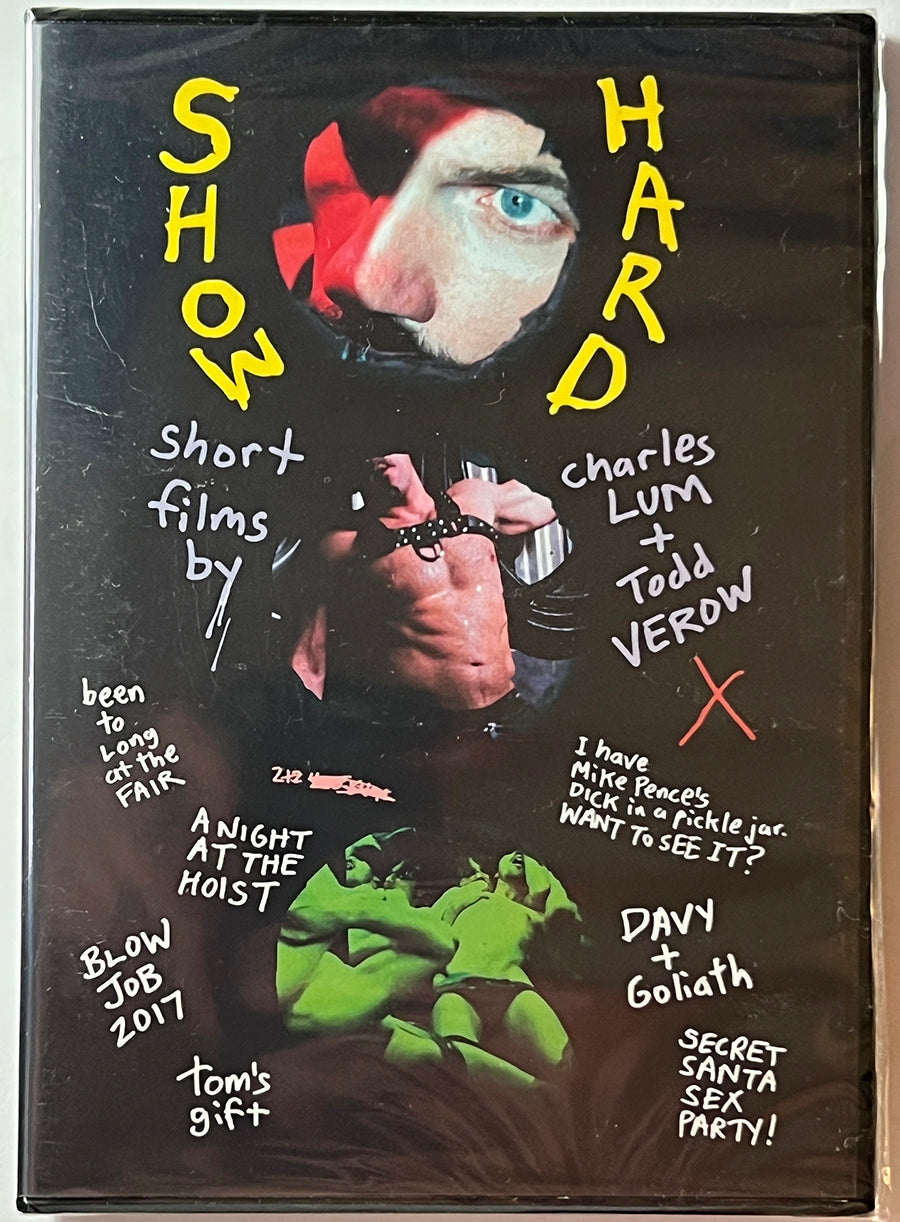 SHOW
HARD
short
films
by
charles
LUM
+
Todd
VEROW
X
been
to
Long
at the
FAIR
I have
Mike Pence's
DICK in a pickle jar.
WANT To SEE IT?
A NIGHT
AT THE
HOIST
BLOW
JOB
2017
DAVY
+
Goliath
tom's
gift
SECRET
SANTA
SEX
PARTY!